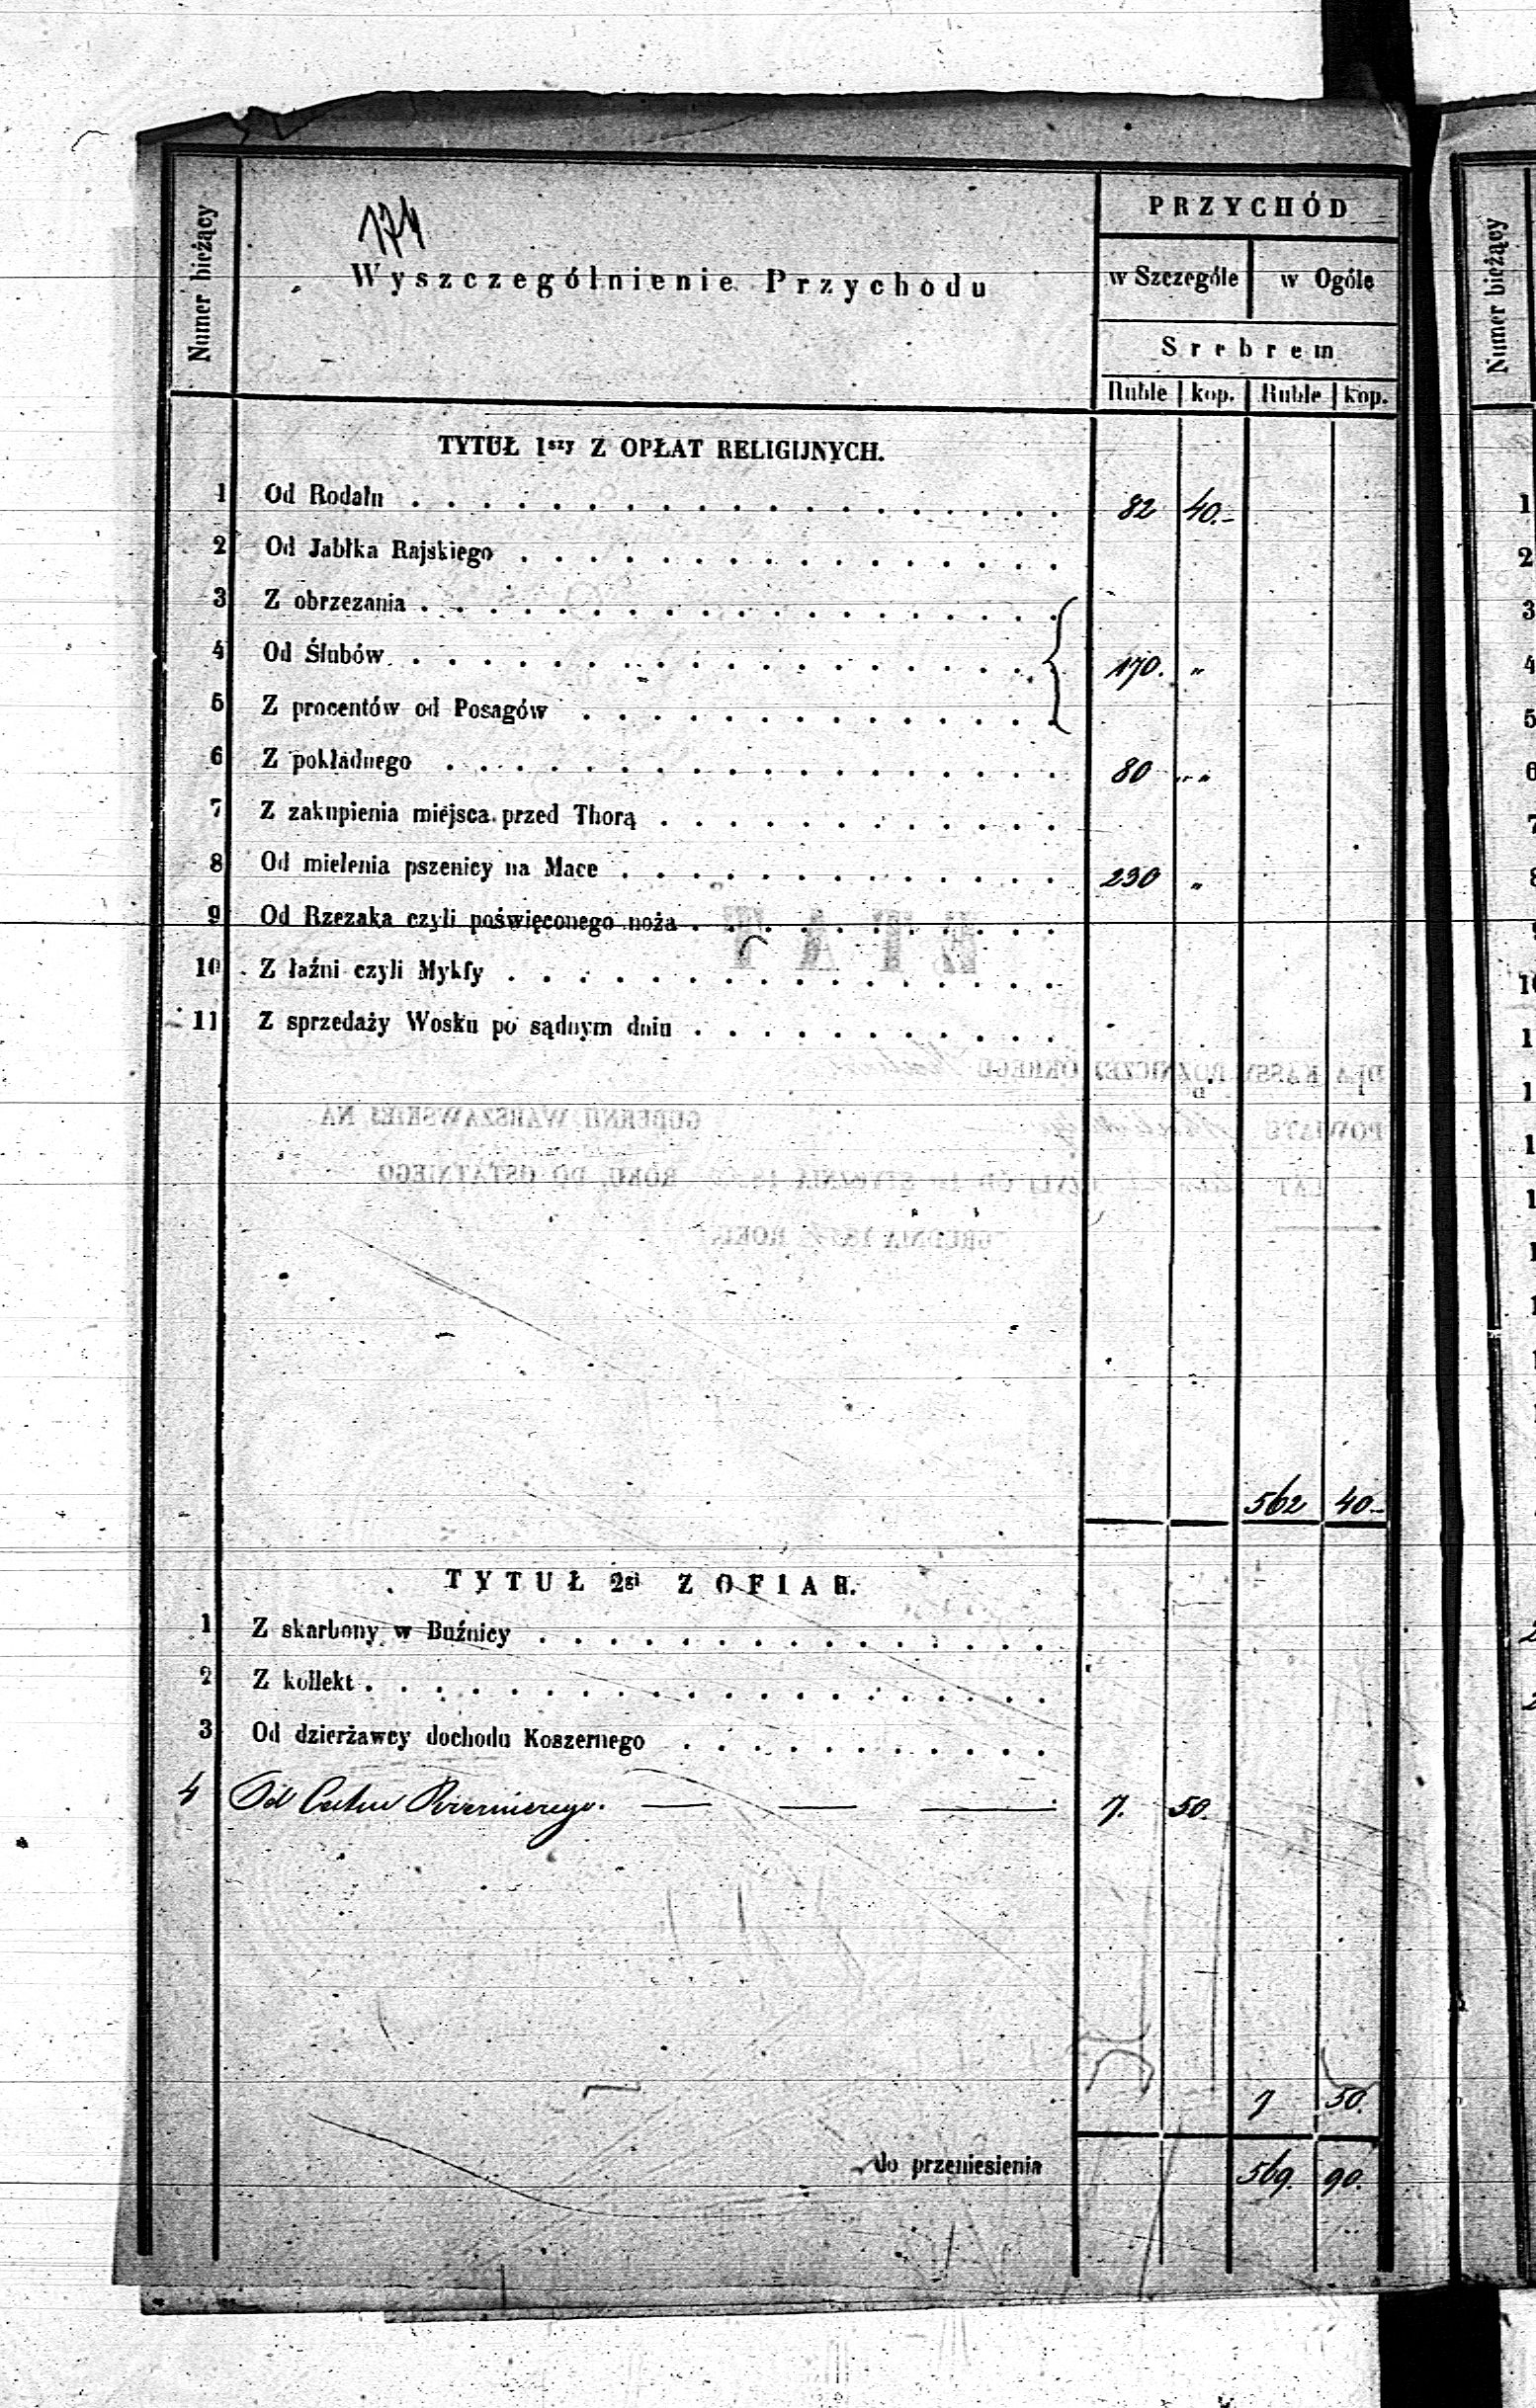 174
Numer bieżący
Wyszczególnienie Przychodu
PRZYCHÓD
w Szczególe w Ogóle
Srebrem
Ruble kop. Ruble kop.
TYTUŁ 1szy Z OPŁAT RELIGIJNYCH.
1 Od Rodału . . . . . . . . . . . . . . . . . . 82 40.-
2 Od Jabłka Rajskiego . . . . . . . . . . . . . . . .
3 Z obrzezania . . . . . . . . . . . . . . . . . .
4 Od Ślubów . . . . . . . . . . . . . . . . . . 170. "
5 Z procentów od Posagów . . . . . . . . . . . . . .
6 Z pokładnego . . . . . . . . . . . . . . . . . . 80 "
7 Z zakupienia miejsca przed Thorą . . . . . . . . . . . .
8 Od mielenia pszenicy na Mace . . . . . . . . . . . . . 230 "
9 Od Rzezaka czyli poświęconego noża . . . . . . . . . . .
10 Z łaźni czyli Mykfy . . . . . . . . . . . . . . . .
11 Z sprzedaży Wosku po sądnym dniu . . . . . . . . . . .
562 40.-
TYTUŁ 2gi Z OFIAR.
1 Z skarbony w Buźnicy . . . . . . . . . . . . . . .
2 Z kollekt . . . . . . . . . . . . . . . . . . .
3 Od dzierżawcy dochodu Koszernego . . . . . . . . . . .
4 Od 7. 50.
7 50.
do przeniesienia 569. 90.
Numer bieżący
1
2
3
4
5
6
7
8